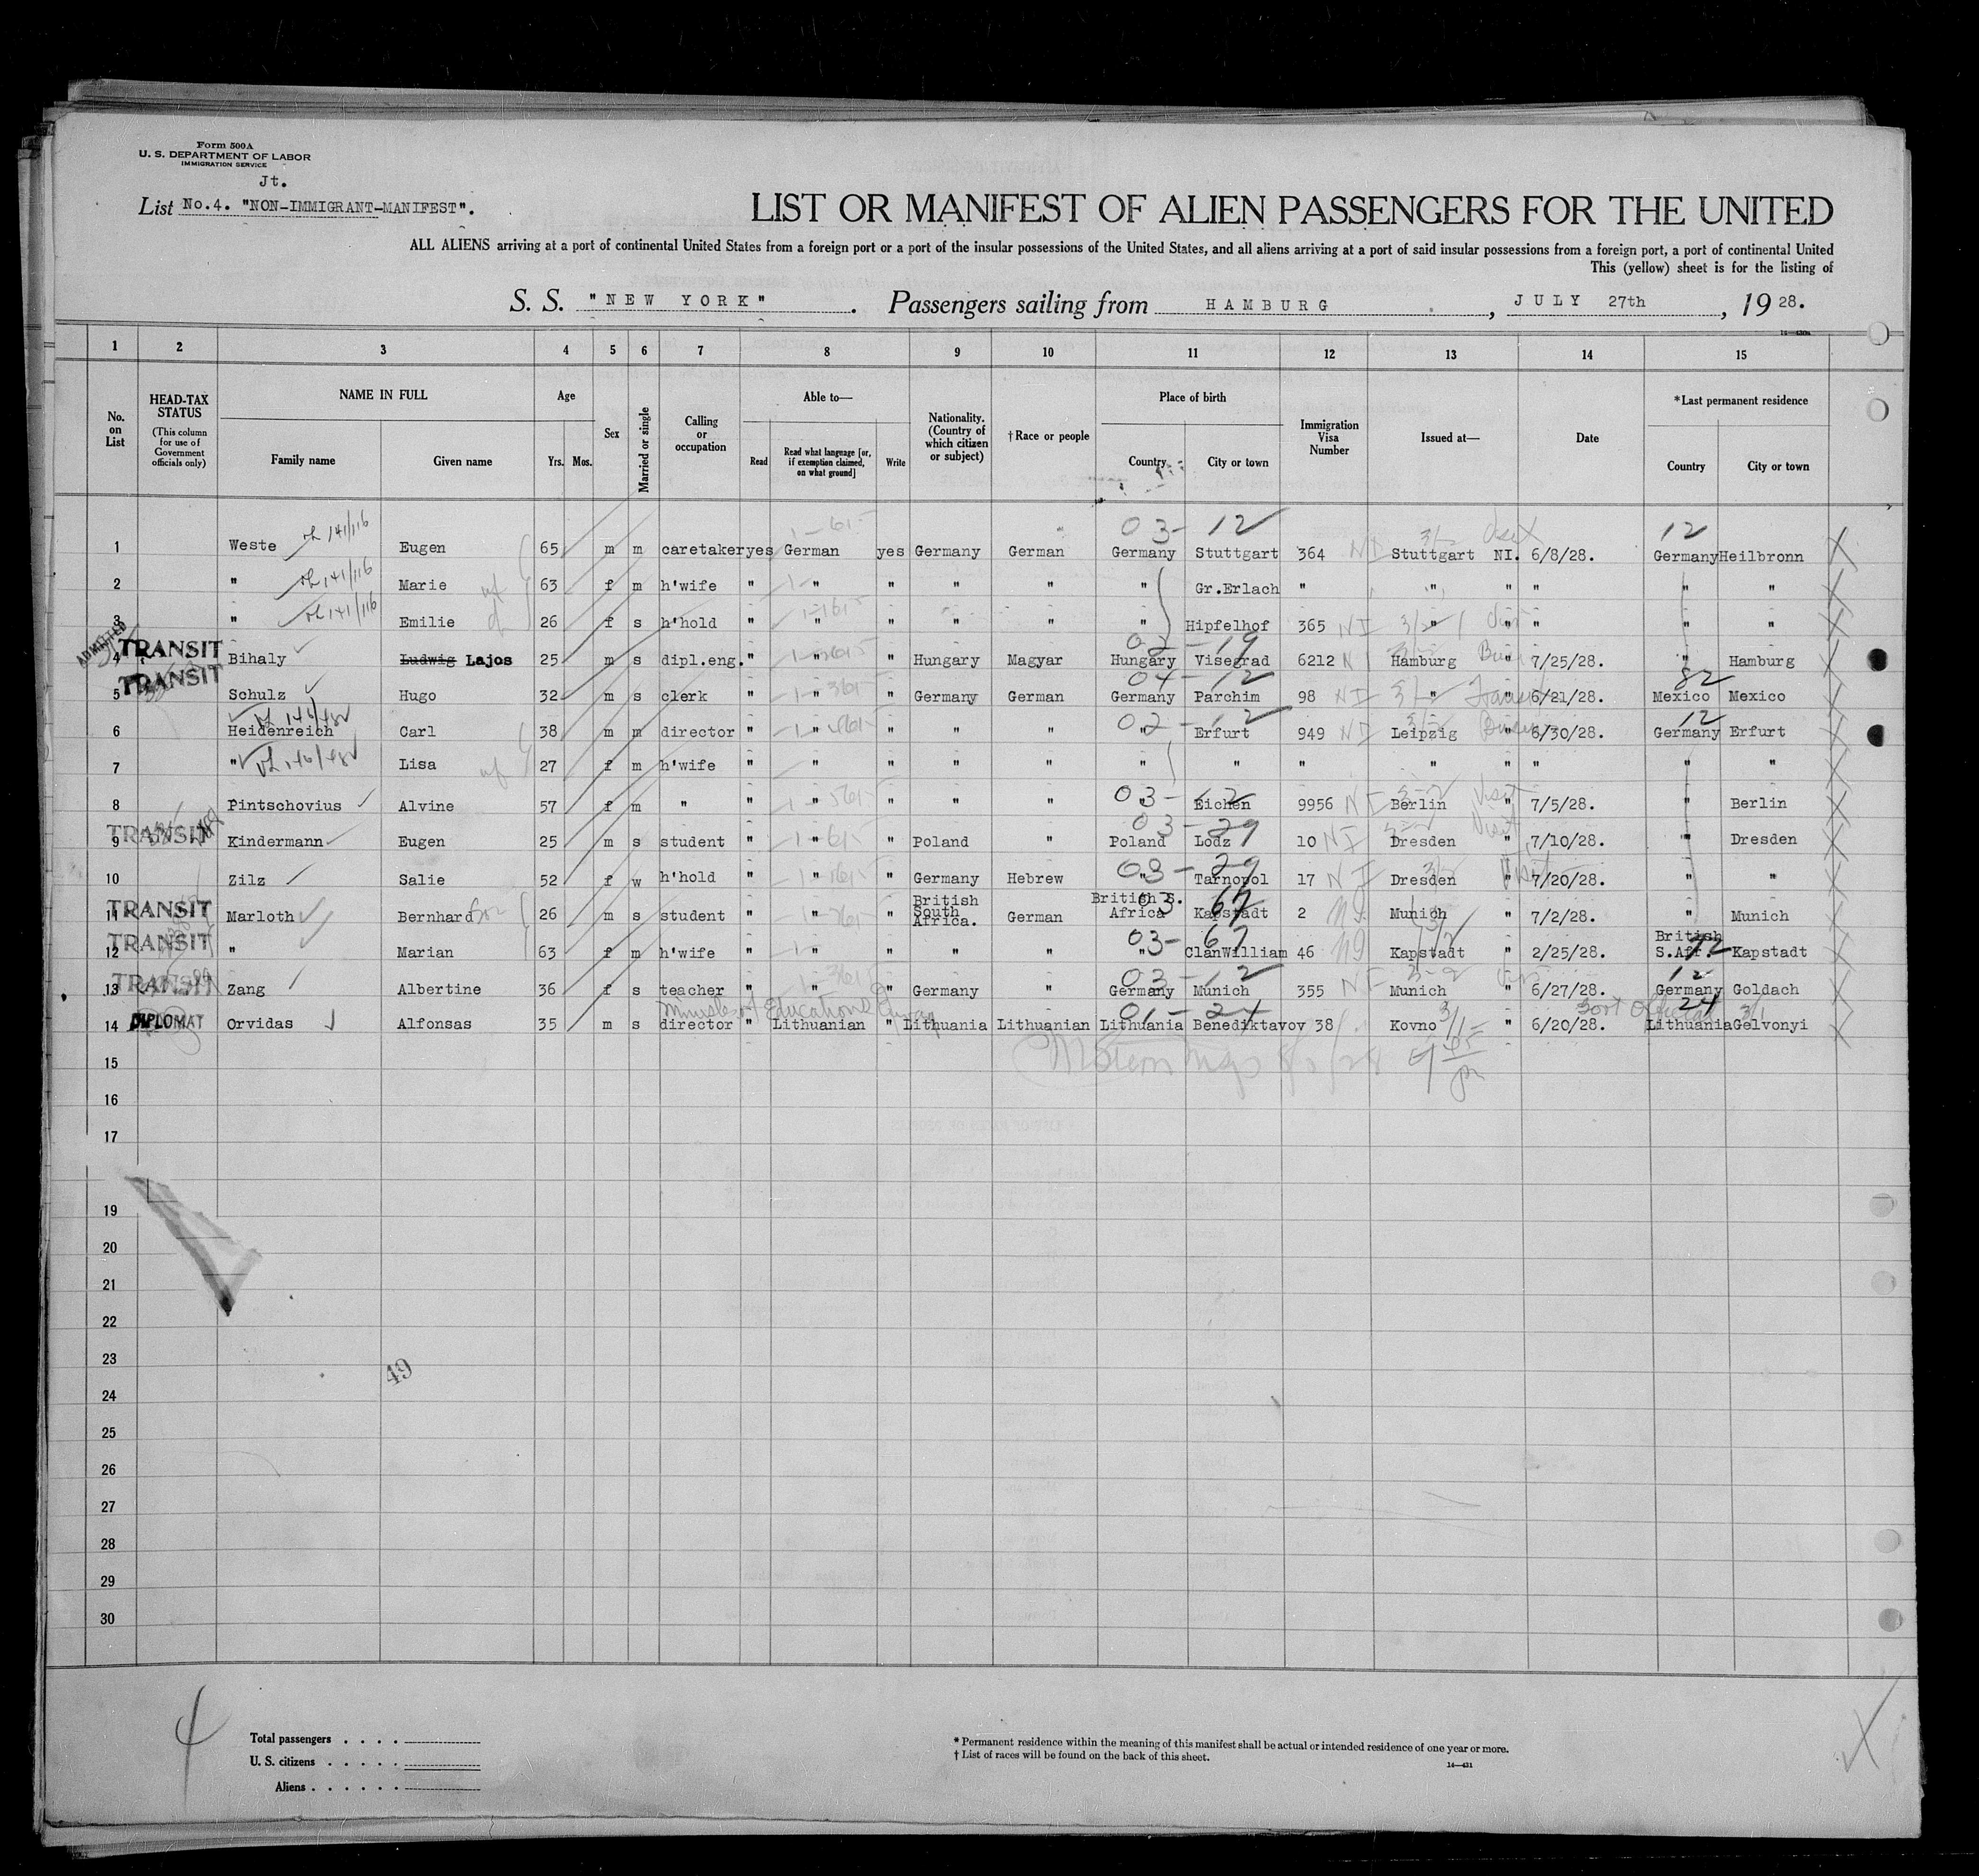 Form 500A
U. S. DEPARTMENT OF LABOR
IMMIGRATION SERVICE
Jt.
List No.4. "NON-IMMIGRANT-MANIFEST".
LIST OR MANIFEST OF ALIEN PASSENGERS FOR THE UNITED
ALL ALIENS arriving at a port of continental United States from a foreign port or a port of the insular possessions of the United States, and all aliens arriving at a port of said insular possessions from a foreign port, a port of continental United
This (yellow) sheet is for the listing of
S. S. "NEW YORK". Passengers sailing from HAMBURG, JULY 27th, 19 28.
1 2 3 4 5 6 7 8 9 10 11 12 13 14 15
No. on List
HEAD-TAX STATUS (This column for use of Government officials only)
NAME IN FULL Family name Given name
Age Yrs. Mos.
Sex
Married or single
Calling or occupation
Able to— Read Read what language [or, if exemption claimed, on what ground] Write
Nationality. (Country of which citizen or subject)
†Race or people
Place of birth Country City or town
Immigration Visa Number
Issued at—
Date
*Last permanent residence Country City or town
03- 12 12
1 Weste 141/116 Eugen 65 m m caretaker yes German yes Germany German Germany Stuttgart 364 NI Stuttgart NI. 6/8/28. Germany Heilbronn X
2 " 141/116 Marie wf 63 f m h'wife " " " " " " Gr.Erlach " " " " " " X
3 " 141/116 Emilie 26 f s h'hold " " " " " " Hipfelhof 365 NI " " " " " X
ADMITTED
02-19
4 TRANSIT Bihaly Ludwig Lajos 25 m s dipl.eng. " " " Hungary Magyar Hungary Visegrad 6212 Hamburg " 7/25/28. " Hamburg X
TRANSIT
04-12 82
5 Schulz Hugo 32 m s clerk " " " Germany German Germany Parchim 98 NI " " 6/21/28. Mexico Mexico X
146/482 02-12 12
6 Heidenreich Carl 38 m m director " " " " " " Erfurt 949 NI Leipzig " 6/30/28. Germany Erfurt X
7 " 146/482 Lisa wf 27 f m h'wife " " " " " " " " " " " " " X
03-12
8 Pintschovius Alvine 57 f m " " " " " " " Eichen 9956 NI Berlin Visit " 7/5/28. " Berlin X
03-29
9 TRANSIT Kindermann Eugen 25 m s student " " " Poland " Poland Lodz 10 NI Dresden Visit " 7/10/28. " Dresden X
03-29
10 Zilz Salie 52 f w h'hold " " " Germany Hebrew " Tarnopol 17 NI Dresden Visit " 7/20/28. " " X
03 67
11 TRANSIT Marloth Bernhard 26 m s student " " " British South Africa. German British S. Africa Kapstadt 2 Munich 7/2/28. " Munich X
03-67 72
12 TRANSIT " Marian 63 f m h'wife " " " " " " ClanWilliam 46 Kapstadt 2/25/28. British S.Afr. Kapstadt X
03-12 12
13 TRANSIT Zang Albertine 36 f s teacher " " " Germany " Germany Munich 355 NI Munich " 6/27/28. Germany Goldach X
01-24 Govt Official 24
14 DIPLOMAT Orvidas Alfonsas 35 m s director " Lithuanian " Lithuania Lithuanian Lithuania Benediktavov 38 Kovno " 6/20/28. Lithuania Gelvonyi X
15
16
17
19
20
21
22
23
49
24
25
26
27
28
29
30
4
Total passengers . . . .
U. S. citizens . . . . .
Aliens . . . . . .
* Permanent residence within the meaning of this manifest shall be actual or intended residence of one year or more.
† List of races will be found on the back of this sheet.
14—431